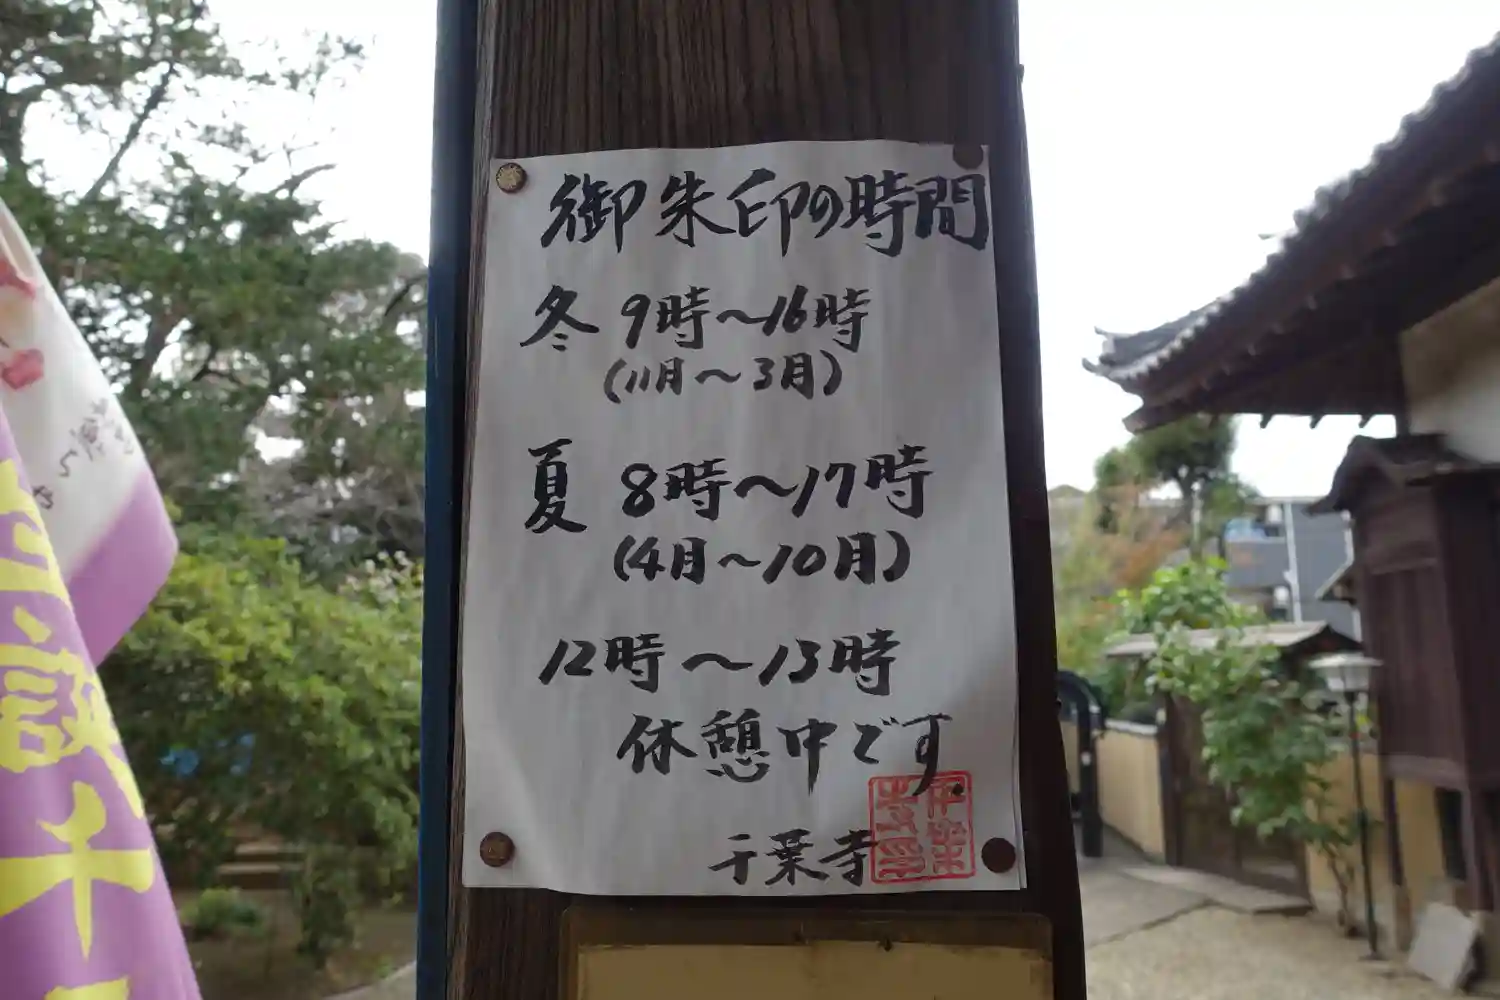 御朱印の時間
冬 9時〜16時
(11月〜3月)
夏 8時〜17時
(4月〜10月)
12時〜13時
休憩中です
千葉寺
千葉寺印
誕千